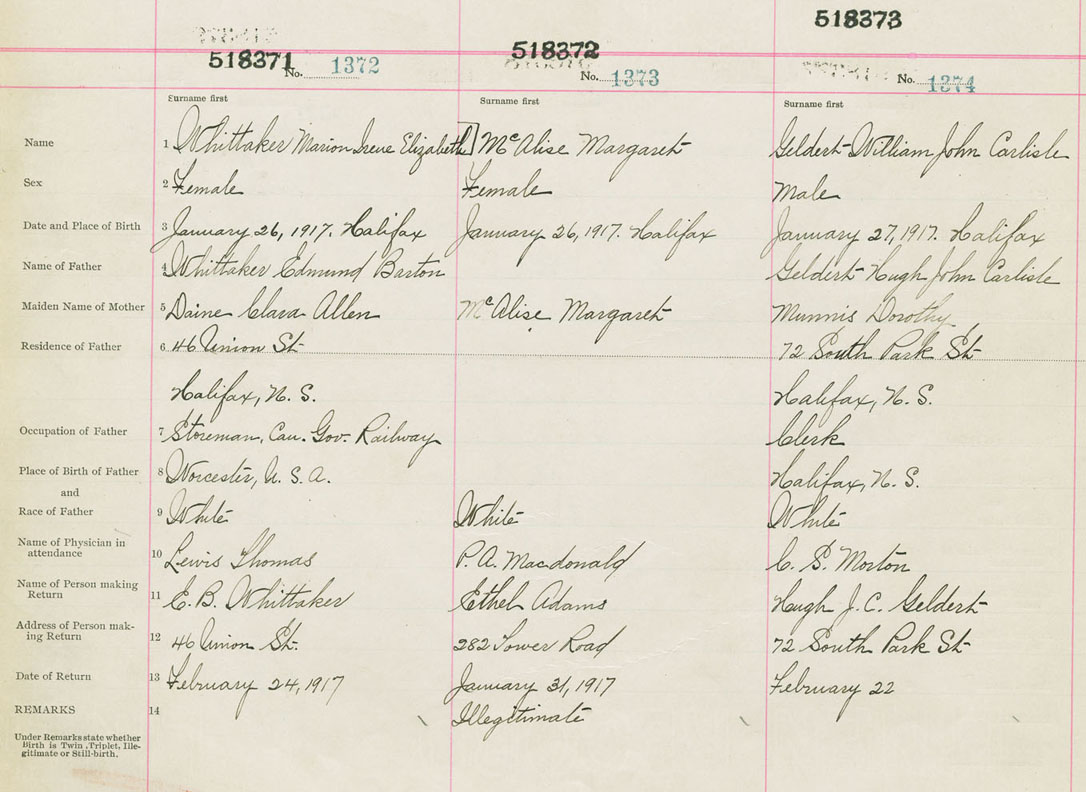 518373
518371 518372
No. 1372 No. 1373 No. 1374
Surname first Surname first Surname first
Name 1 Whittaker Marion Irene Elizabeth] McAlise Margaret Geldert William John Carlisle
Sex 2 Female Female Male
Date and Place of Birth 3 January 26, 1917. Halifax January 26, 1917. Halifax January 27, 1917. Halifax
Name of Father 4 Whittaker Edmund Barton Geldert Hugh John Carlisle
Maiden Name of Mother 5 Daine Clara Allen McAlise Margaret Munnis Dorothy
Residence of Father 6 46 Union St 72 South Park St
Halifax, N. S. Halifax, N. S.
Occupation of Father 7 Storeman, Can. Gov. Railway Clerk
Place of Birth of Father 8 Worcester, U. S. A. Halifax, N. S.
and
Race of Father 9 White White White
Name of Physician in
attendance 10 Lewis Thomas P. A. Macdonald C. S. Morton
Name of Person making
Return 11 E. B. Whittaker Ethel Adams Hugh J. C. Geldert
Address of Person mak-
ing Return 12 46 Union St. 282 Tower Road 72 South Park St
Date of Return 13 February 24, 1917 January 31, 1917 February 22
REMARKS 14 Illegitimate
Under Remarks state whether
Birth is Twin, Triplet, Ille-
gitimate or Still-birth.